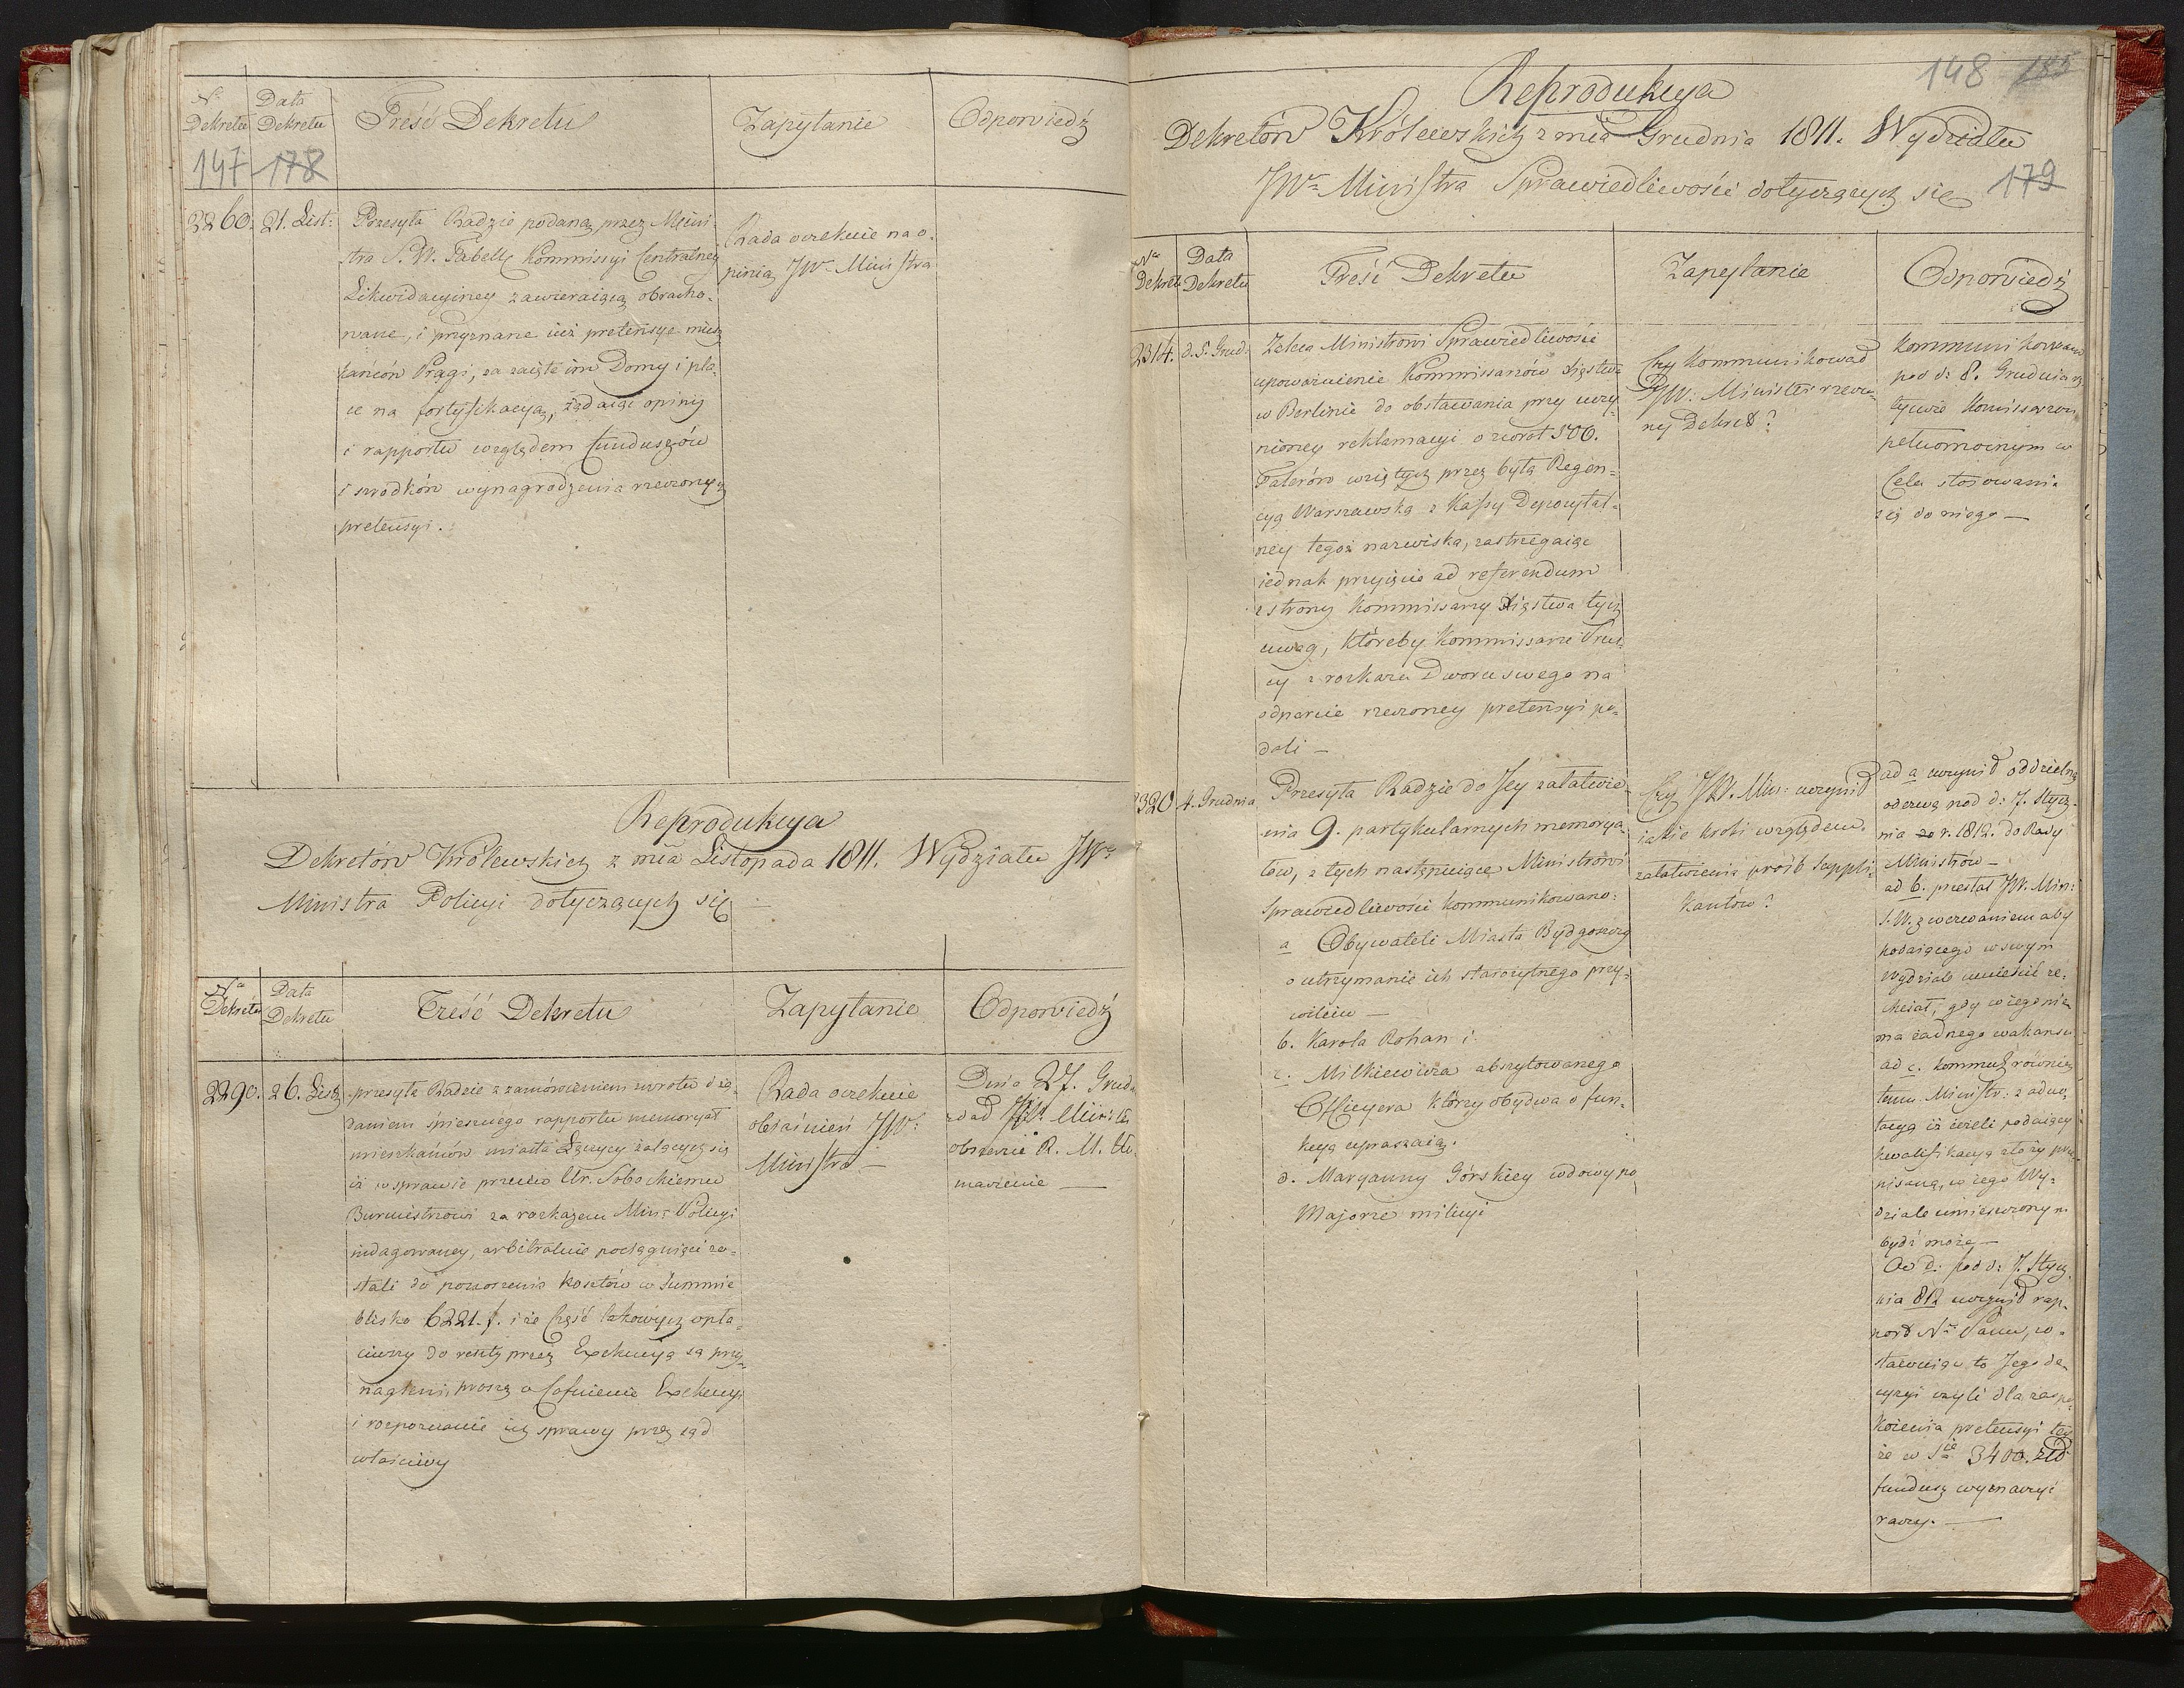 Nº Dekretu
Data Dekretu
Treść Dekretu
Zapytanie
Odpowiedź
147 178
2260. 21. List:
Przesyła Radzie podaną przez Mini-
stra S. W. Tabellę Kommissyi Centralney
Likwidacyiney zawieraiącą obracho-
wane, i przyznane iuż pretensye miesz
kańców Pragi, za zaięte im Domy i pla-
ce na fortyfikacyą, żądaiąc opinij
i rapportu względem funduszów
i srodków wynagrodzenia rzeczonych
pretensyi.
Rada oczekuie na o-
pinią JWº Ministra
Reprodukcya
Dekretów Królewskich z mca Listopada 1811. Wydziału JWº
Ministra Policyi dotyczących się
Nº Dekretu
Data Dekretu
Treść Dekretu
Zapytanie
Odpowiedź
2290. 26. List
przesyła Radzie z zamówieniem zwrotu i żą-
daniem śpiesznego rapportu memoryał
mieszkańców miasta Łęczycy żalących się
iż w sprawie przeciw Ur. Sobockiemu
Burmistrzowi za rozkazem Min: Policyi
indagowaney, arbitralnie pociągnięci zo-
stali do ponoszenia kosztów w Summie
blisko 6221. f. i że część takowych opła-
ciwszy do reszty przez Exekucyą są przy-
nagleni, proszą o Cofnienie Exekucyi
i rozpoznanie ich sprawy przez sąd
właściwy
Rada oczekuie
obiaśnień JWº
Ministra —
Dnia 27. Grud:
zdał JW. Minister
obszernie R. M. tło-
maczenie —
148 185
Reprodukcya
Dekretów Królewskich z mca Grudnia 1811. Wydziału
JWº Ministra Sprawiedliwości dotyczących się
179
Nº Dekretu
Data Dekretu
Treść Dekretu
Zapytanie
Odpowiedź
2314. d. 5. Grud:
Zaleca Ministrowi Sprawiedliwości
upoważnienie Kommissarzów Xięstwa
w Berlinie do obstawania przy uczy-
nioney reklamacyi o zwrot 500.
Talerów wziętych przez byłą Regen-
cyą Warszawską z Kassy Depozytal-
ney tegoż nazwiska, zastrzegaiąc
iednak przyięcie ad referendum
z strony Kommissarzy Xięstwa tych
uwag, któreby Kommissarze Prus-
cy z rozkazu Dworu swego na
odparcie rzeczoney pretensyi po-
dali —
Czy kommunikował
JW: Minister rzeczo-
ny Dekret?
Kommunikowany
pod d: 8. Grudnia
tychże Komissarzom
pełnomocnym w
Celu stosowania
się do niego —
2320 4. Grudnia
Przesyła Radzie do Jey załatwie-
nia 9. partykularnych memorya-
łów, z tych następuiące Ministrowi
Sprawiedliwosci kommunikowano:
a Obywateli Miasta Bydgoszczy
o utrzymanie ich starożytnego przy-
wileiu —
b. Karola Rohan i
c. Milkiewicza abszytowanego
Officyera którzy obydwa o fun-
kcyą upraszaią.
d. Maryanny Górskiey wdowy po
Majorze milicyi
Czy JW. Min: uczynił
iakie kroki względem
załatwienia prośb suppli-
kantów?
ad a uczynił oddzielną
odezwę pod d: 7. Stycz-
nia r. 1812. do Rady
Ministrów —
ad b. przesłał JW. Min:
S. W. z wezwaniem aby
podaiącego w swym
Wydziale umieścić ze-
chciał, gdy w iego nie
ma żadnego wakansu
ad c. kommuń: równiez
temu Ministr: z adno-
tacyą iż ieżeli podaiący
kwalifikacyą złoży prze-
pisaną, w iego Wy-
dziale umieszczonym
bydź może —
Ad d: pod d: 7. Stycz-
nia 812 uczynił rap-
port Nº Panu, zo-
stawuiąc to Jego de-
cyzyi czyli dla zaspo-
koienia pretensyi tey
że w Sie 3400. złł
fundusz wyznaczyć
raczy. —